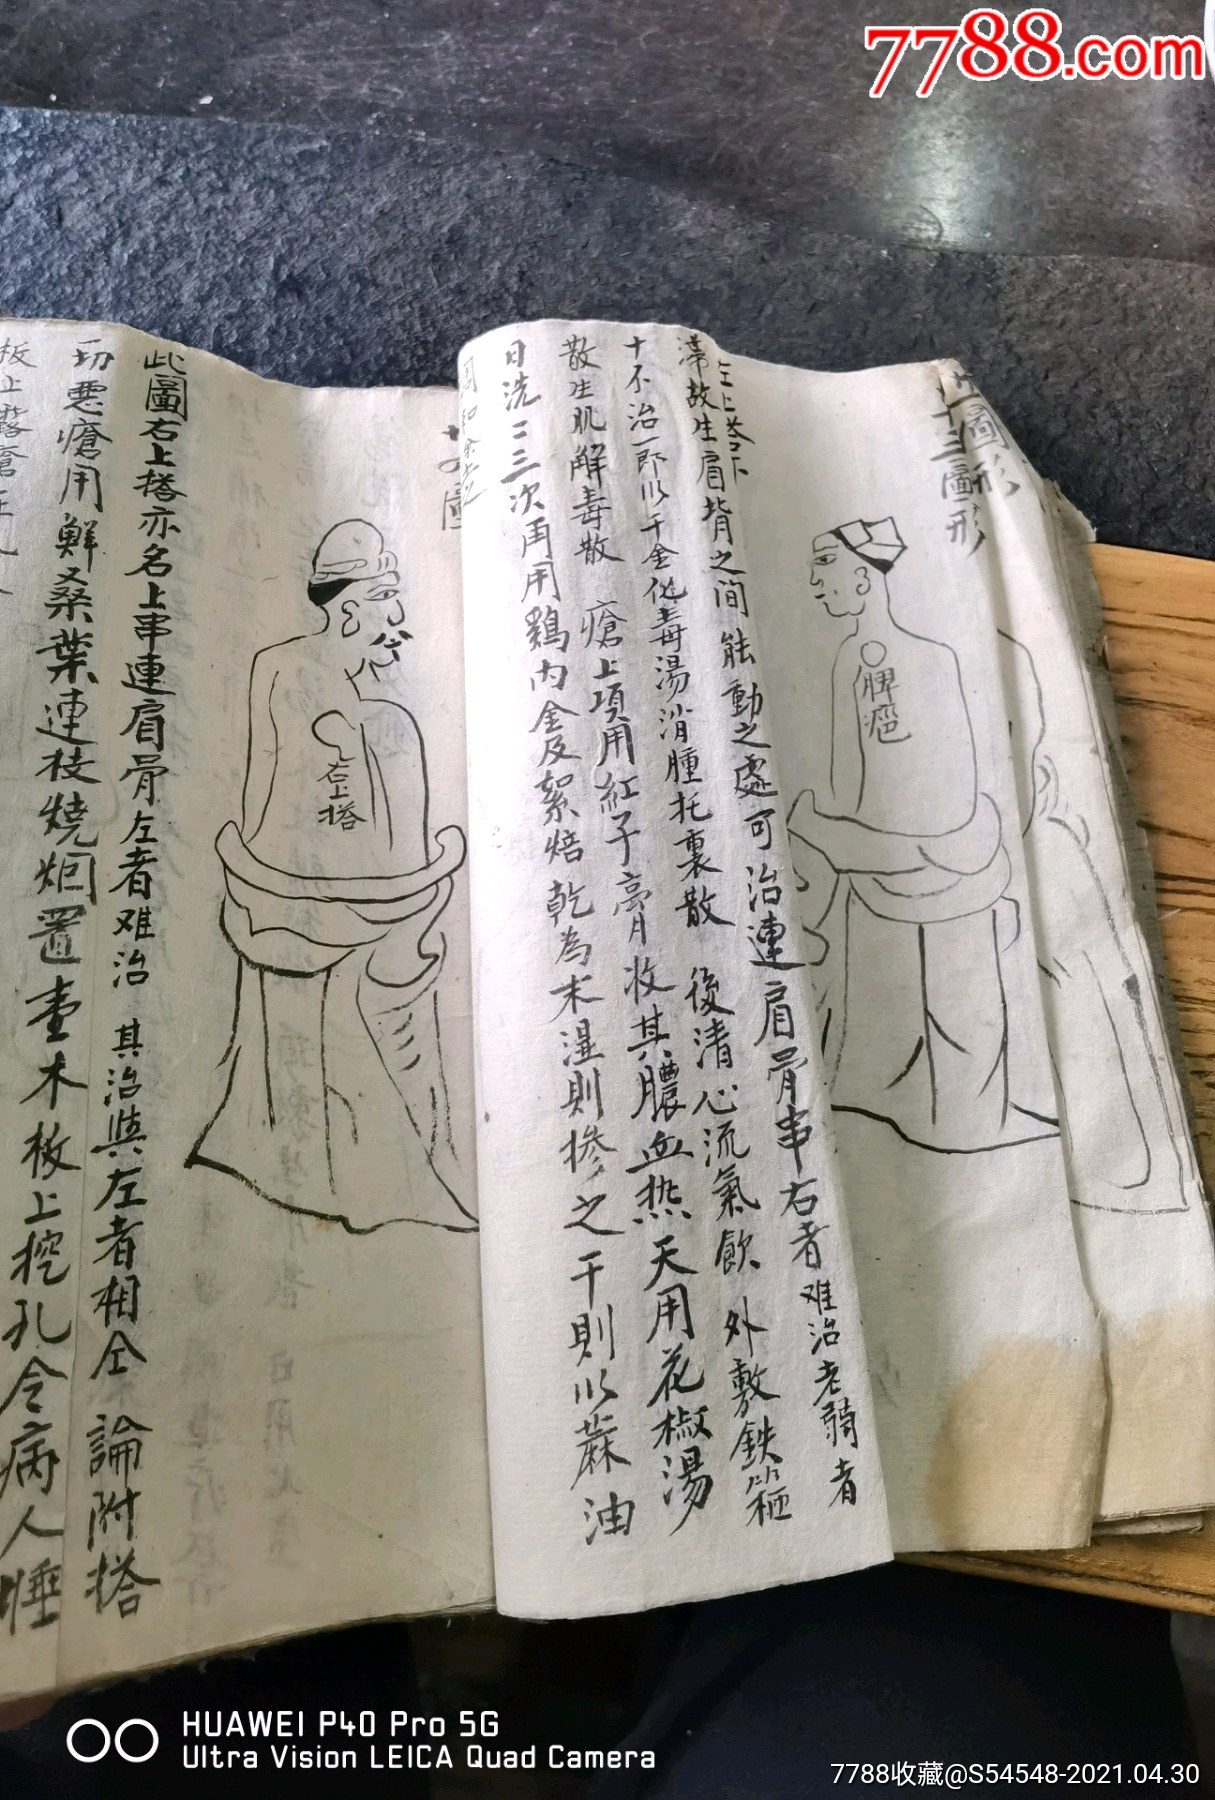 7788.com
十三圖形
圖形
脾疽
左上搭
滯故生肩背之間能動之處可治連肩骨串右者难治老弱者
十不治一即以千金化毒湯消腫托裏散 後清心流氣飲 外敷鉄箍
散生肌解毒散 瘡上項用紅子膏收其膿血热天用花椒湯
日洗二三次再用鷄内金及絮焙乾為末濕則摻之干則以蔴油
圖
右上搭
此圖右上搭亦名上串連肩骨左者难治 其治與左者相仝 論附搭
切悪瘡用鮮桑葉連枝燒烟置壹木板上挖孔令病人睡
板上露瘡在孔
HUAWEI P40 Pro 5G
Ultra Vision LEICA Quad Camera
7788收藏@S54548-2021.04.30